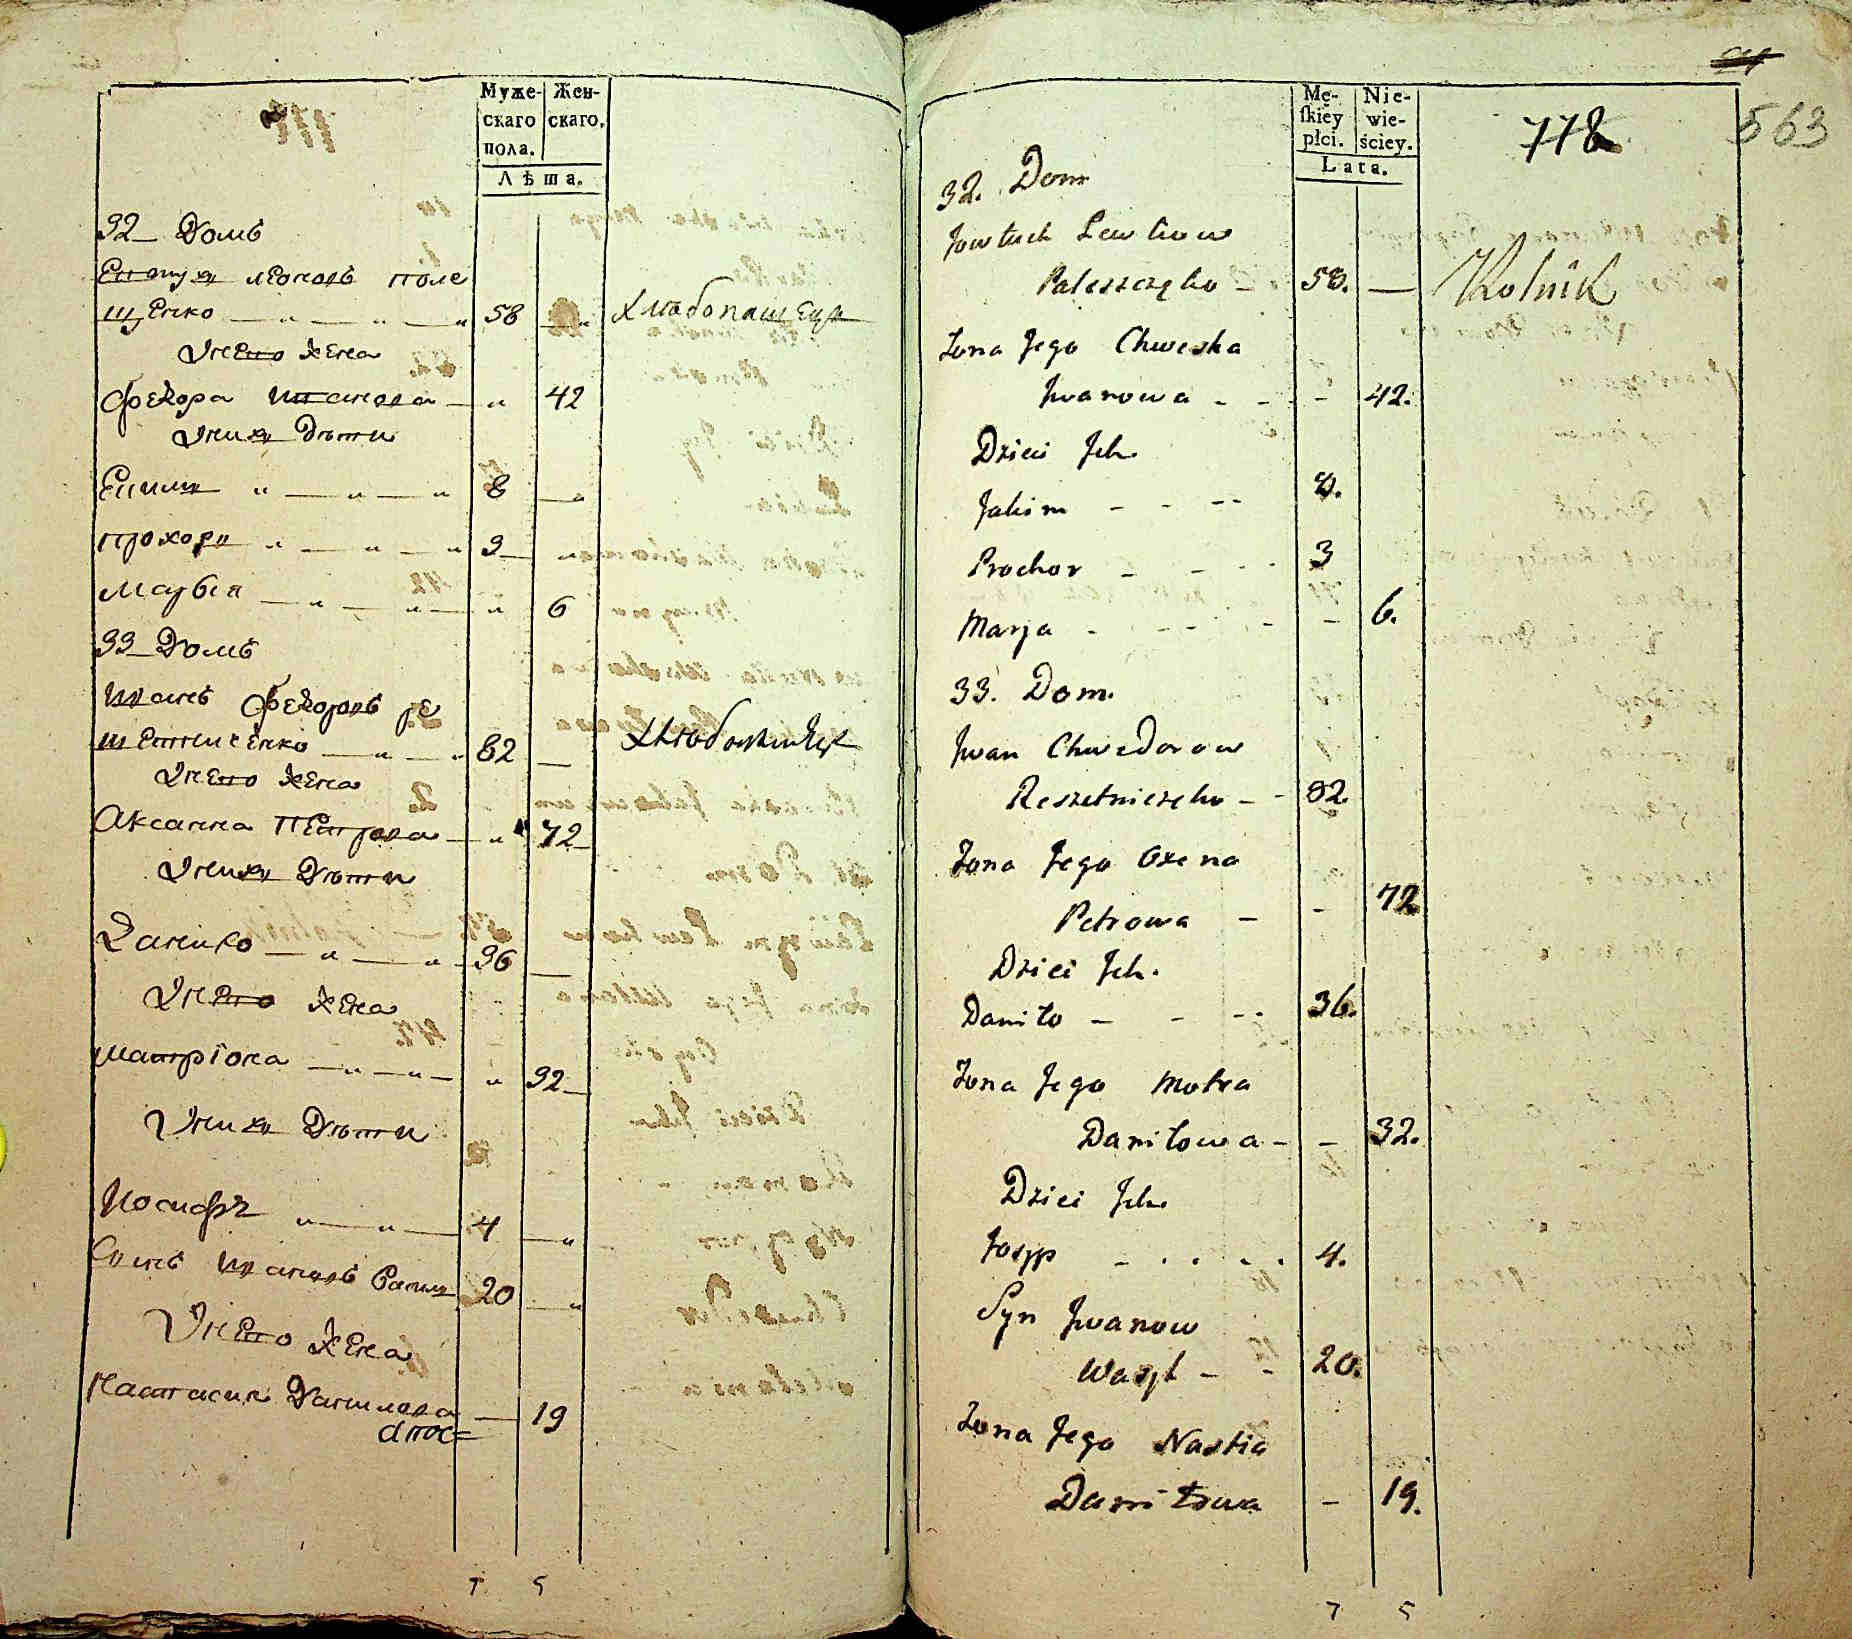 Муже-
скаго
пола.
Жен-
скаго.
Лѣта.
32 Домъ
Евтухъ Леоновъ Поле
щенко 58 Хлѣбопашецъ
Унего жена
Федора Иванова 42
Унихъ Дѣти
Екимъ 8
Прохоръ 3
Марья 6
33 Домъ
Иванъ Федоровъ Ре
шетниченко 82
Унего жена
Аксанна Петрова 72
Унихъ Дѣти
Данило 36
Унего жена
Матріона 32
Унихъ Дѣти
Иосифъ 4
Сынъ Ивановъ Васил 20
Унего жена
Настасия Данилова 19
7 5
778
563
Mę-
ſkiey
płci.
Nie-
wie-
ściey.
Lata.
32. Dom
Jowtuch Lewkow
Paleszczęko 58. — Rolnik
Zona Jego Chweska
Jwanowa - - - 42.
Dzieci Jch
Jakim - - -- 8.
Prochor - - - - 3
Marja - - - - - - 6.
33. Dom.
Jwan Chwedorow
Reszetniczęko - - 82.
Zona Jego Oxena
Petrowa - - 72
Dzieci Jch.
Daniło - - -- 36.
Zona Jego Motra
Daniłowa - - 32.
Dzieci Jch
Josyp - . . . . 4.
Syn Jwanow
Wasyl - - 20.
Zona Jego Nastia
Daniłowa - 19.
7 5